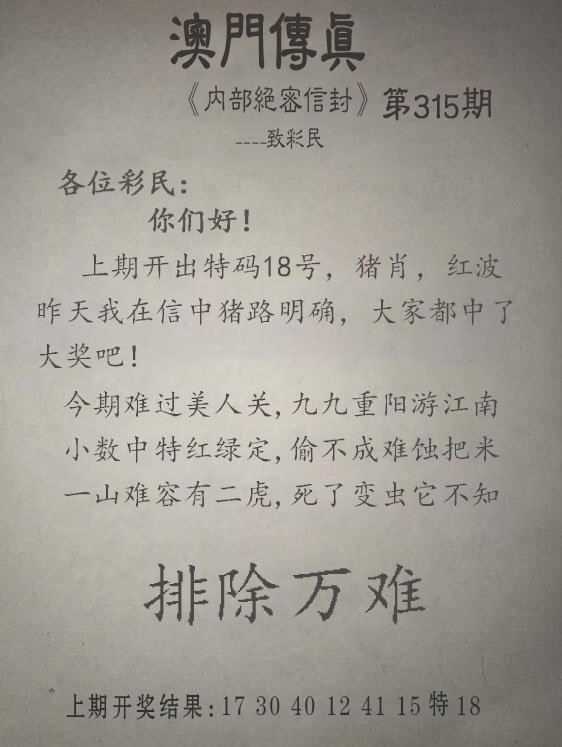 澳門傳眞
《内部絕密信封》第315期
----致彩民
各位彩民：
你们好！
上期开出特码18号，猪肖，红波
昨天我在信中猪路明确，大家都中了
大奖吧！
今期难过美人关,九九重阳游江南
小数中特红绿定,偷不成难蚀把米
一山难容有二虎,死了变虫它不知
排除万难
上期开奖结果:17 30 40 12 41 15 特 18